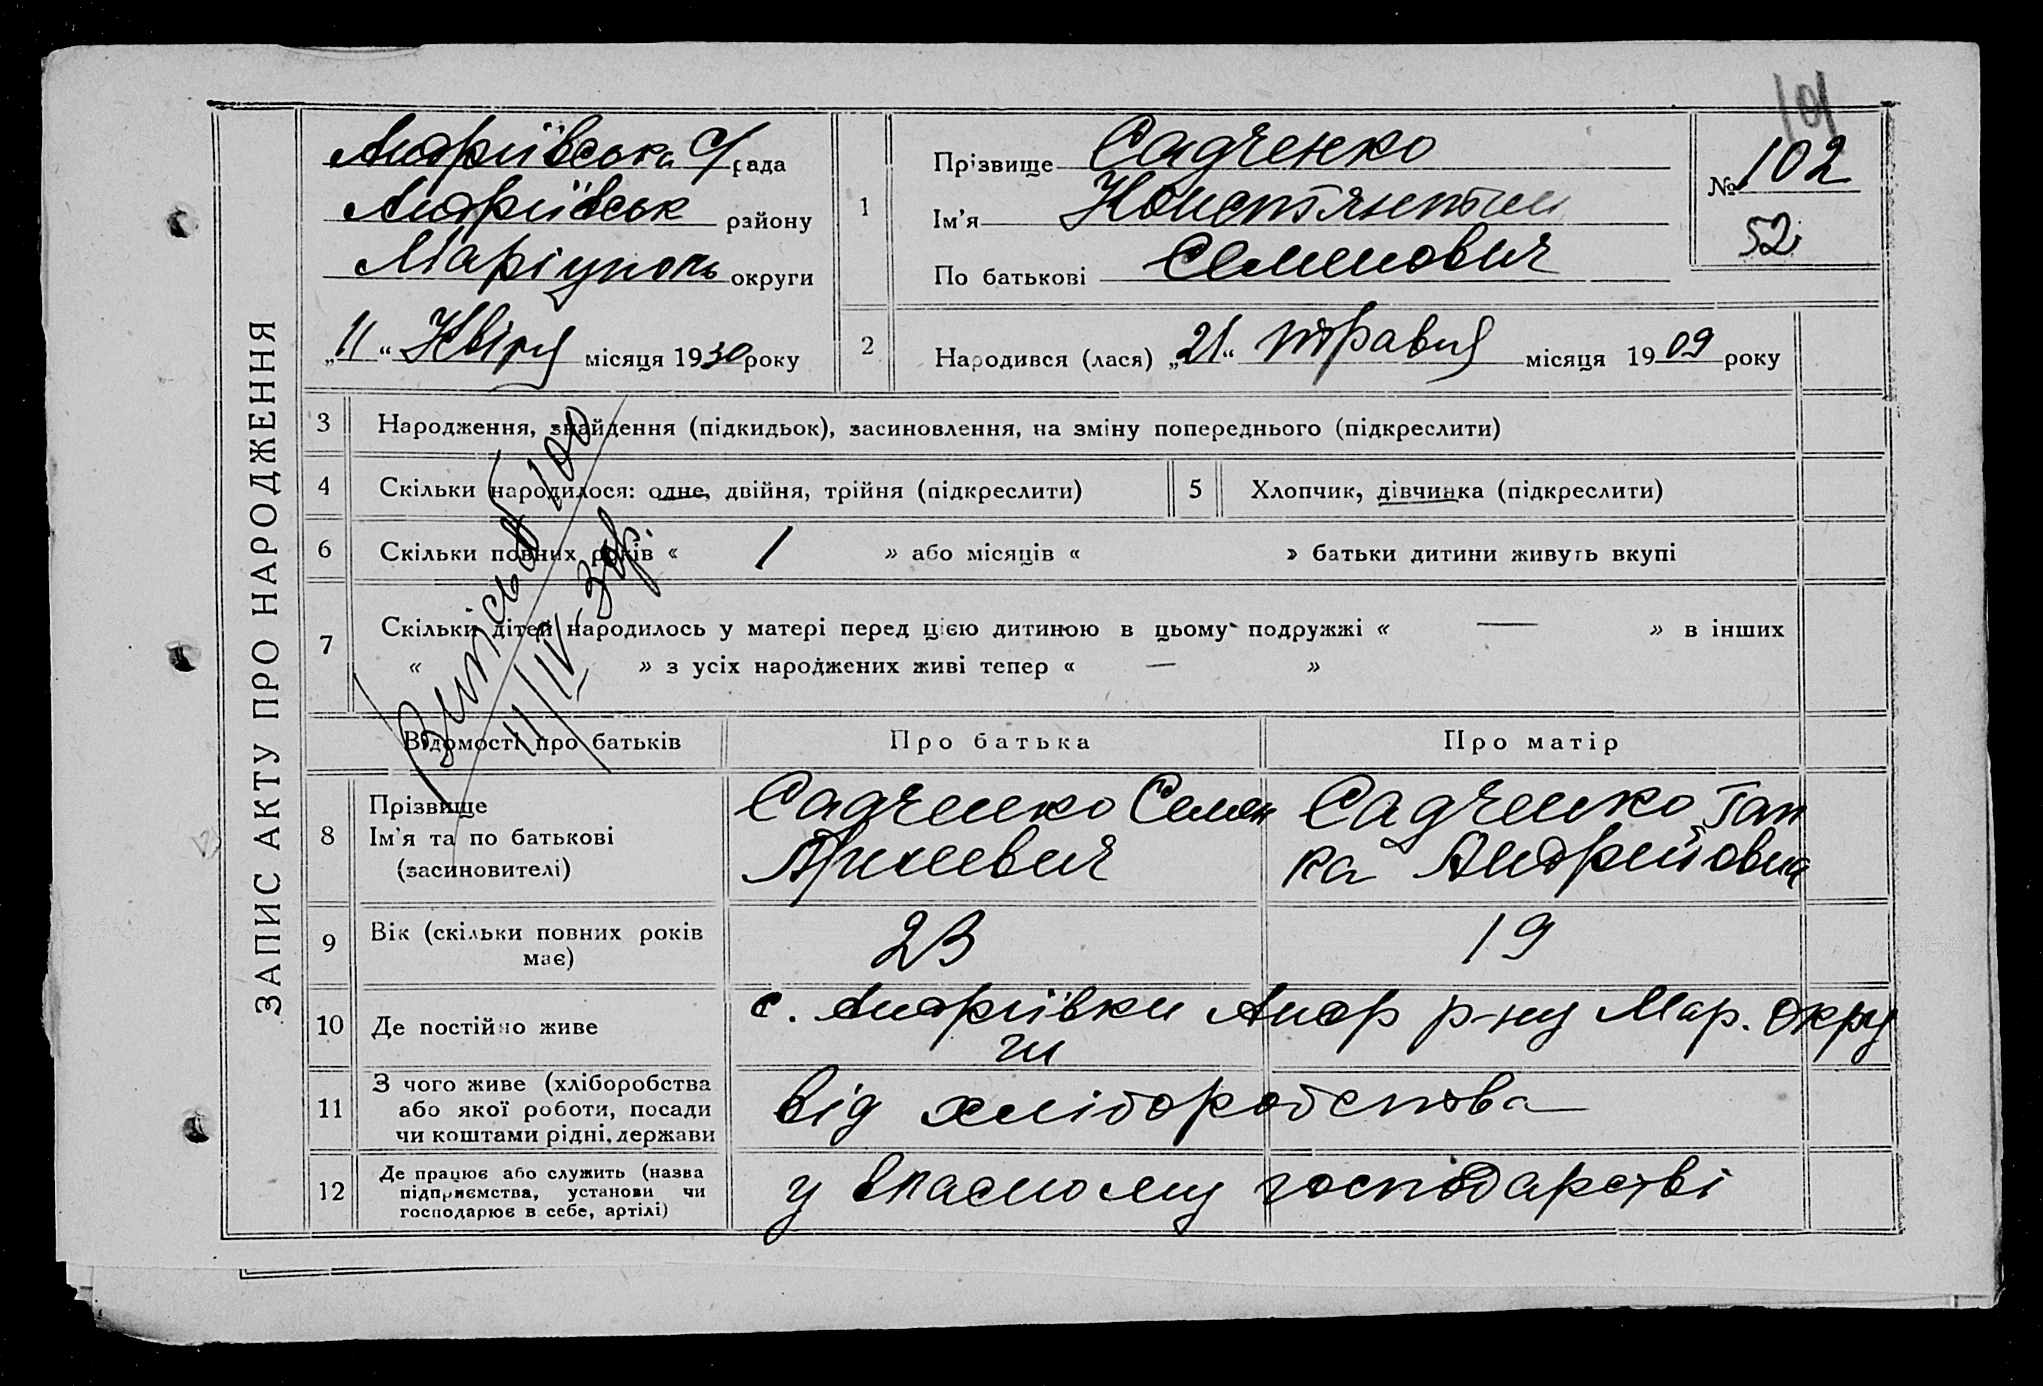 101
ЗАПИС АКТУ ПРО НАРОДЖЕННЯ
Андріївська С/рада
Андріївськ району
Маріуполь округи
„11“ Квітня місяця 1930 року
1
Прізвище Садченко
Ім'я Константин
По батькові Семенович
№ 102
52
2
Народився (лася) „21“ травня місяця 1909 року
3 Народження, знайдення (підкидьок), засиновлення, на зміну попереднього (підкреслити)
4 Скільки народилося: одне, двійня, трійня (підкреслити)
5 Хлопчик, дівчинка (підкреслити)
6 Скільки повних років « 1 » або місяців « » батьки дитини живуть вкупі
7 Скільки дітей народилось у матері перед цією дитиною в цьому подружжі « — » в інших
« » з усіх народжених живі тепер « — »
100
11/IV-30р.
Відомості про батьків
Про батька
Про матір
8
Прізвище
Ім'я та по батькові
(засиновителі)
Садченко Семен
Садченко Ган
ка Андрійовна
9
Вік (скільки повних років
має)
23
19
10 Де постійно живе
с. Андріївки Андр р-ну Мар. Окру
ги
11
З чого живе (хліборобства
або якої роботи, посади
чи коштами рідні, держави
від хліборобства
12
Де працює або служить (назва
підприємства, установи чи
господарює в себе, артілі)
у власному господарстві